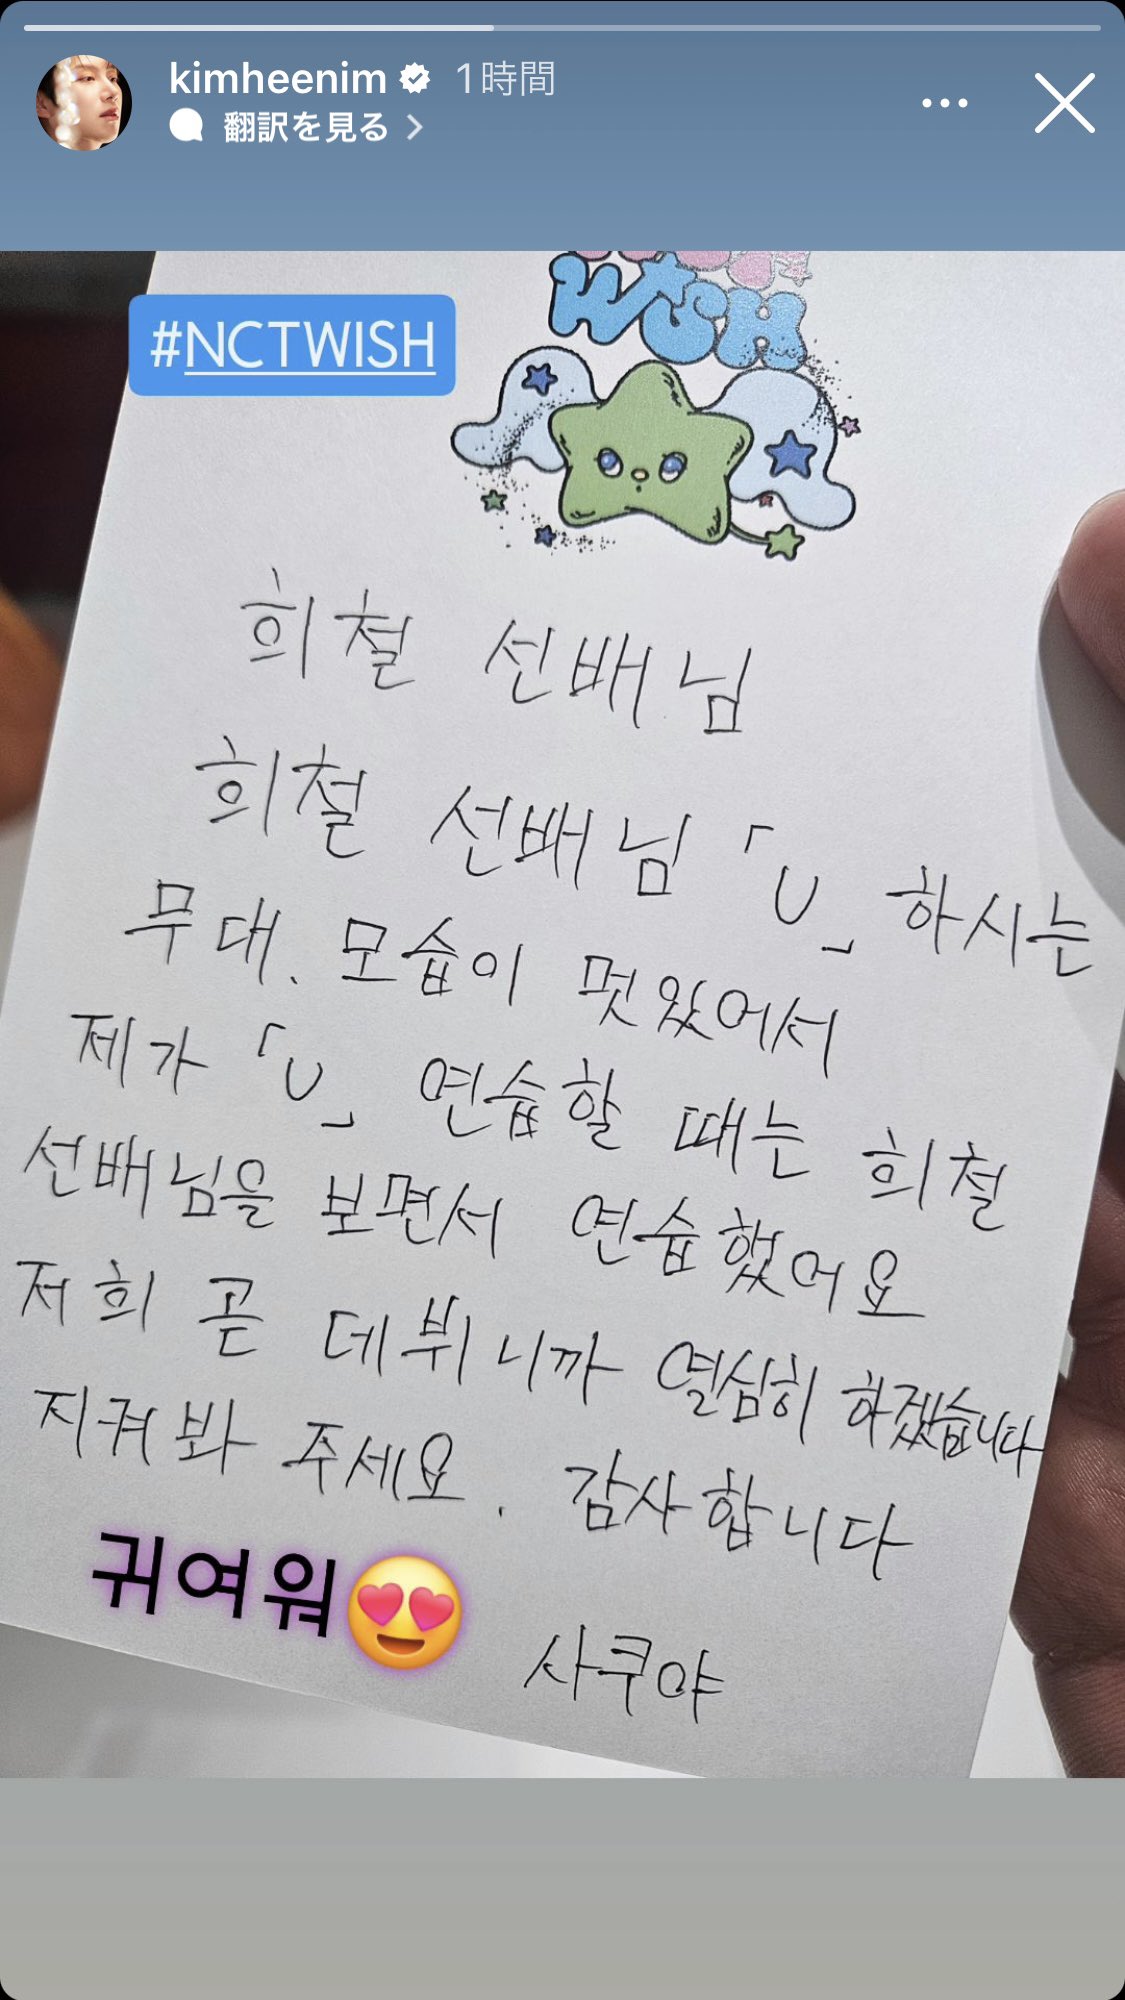 kimheenim 1時間
翻訳を見る
#NCTWISH
WISH
희철 선배님
희철 선배님 「U」 하시는
무대. 모습이 멋있어서
제가 「U」 연습할 때는 희철
선배님을 보면서 연습했어요
저희 곧 데뷔니까 열심히 하겠습니다
지켜봐 주세요. 감사합니다
귀여워😍
사쿠야